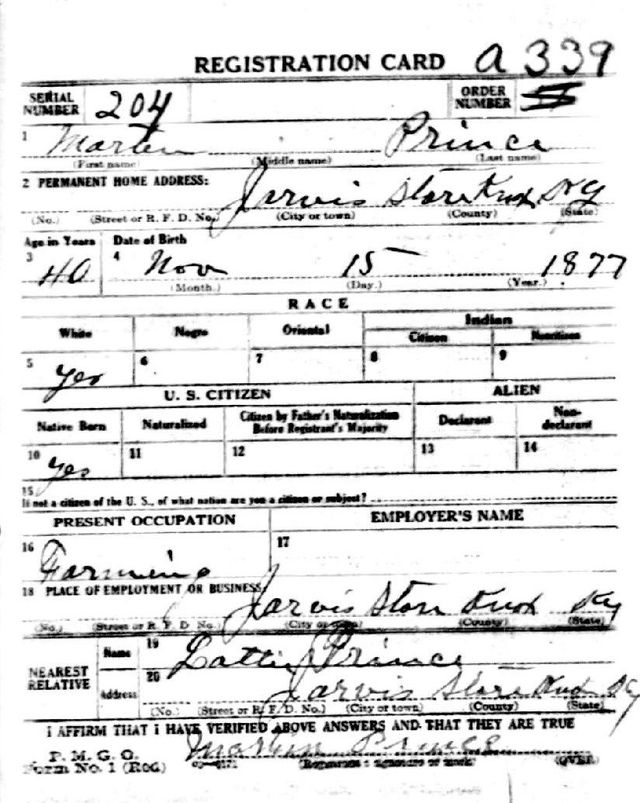 REGISTRATION CARD A 339
SERIAL NUMBER 204 ORDER NUMBER
1 Martin Prince
(First name) (Middle name) (Last name)
2 PERMANENT HOME ADDRESS: Jarvis Store Knox Ky
(No.) (Street or R. F. D. No.) (City or town) (County) (State)
Age in Years Date of Birth
3 40 4 Nov 15 1877
(Month.) (Day.) (Year.)
RACE
White Negro Oriental Indian
Citizen Noncitizen
5 Yes 6 7 8 9
U. S. CITIZEN ALIEN
Native Born Naturalized Citizen by Father's Naturalization Before Registrant's Majority Declarant Non-declarant
10 Yes 11 12 13 14
15
If not a citizen of the U. S., of what nation are you a citizen or subject?
PRESENT OCCUPATION EMPLOYER'S NAME
16 Farming 17
18 PLACE OF EMPLOYMENT OR BUSINESS: Jarvis Store Knox Ky
(No.) (Street or R. F. D. No.) (City or town) (County) (State)
NEAREST RELATIVE Name 19 Lottie Prince
Address 20 Jarvis Store Knox Ky
(No.) (Street or R. F. D. No.) (City or town) (County) (State)
I AFFIRM THAT I HAVE VERIFIED ABOVE ANSWERS AND THAT THEY ARE TRUE
P. M. G. O. Martin Prince
Form No. 1 (Red) (Registrant's signature or mark) (OVER)